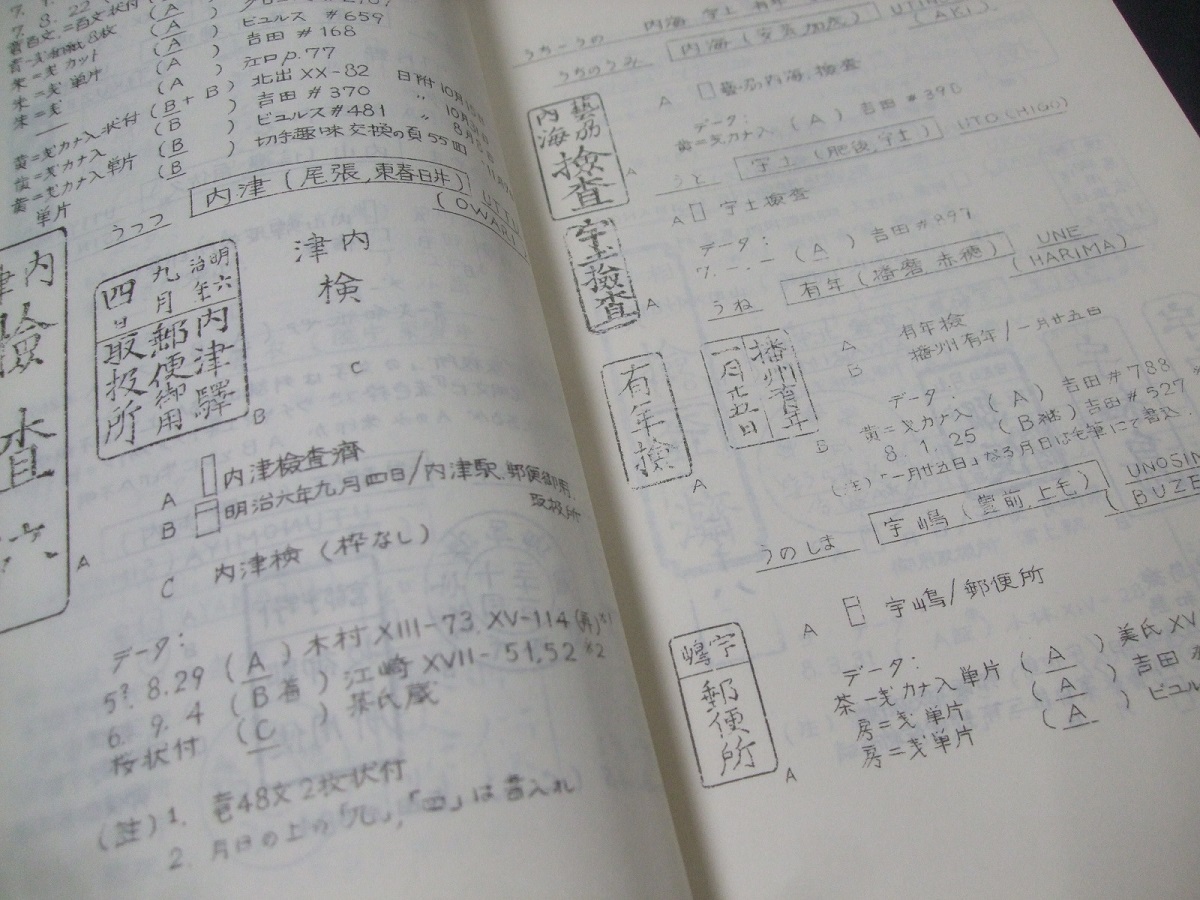 8.22
(A)
(A) ビュルス #659
(A) 吉田 #168
朱=戔 単片 (A) 江口 p.77
朱=戔 (A) 北出 XX-82 日附
黄=戔カナ入状付 (B+B) 吉田 #370
黄=戔カナ入 (B) ビュルス #481
黄=戔カナ入単片 (B) 切手趣味交換の頁 55回
単片
うつつ
内津(尾張,東春日井)
(OWARI)
内津
検
C
明治六年
九月
四日
内津驛
郵便御用
取扱所
B
A
A 内津檢査濟
B 明治六年九月四日/内津駅,郵便御用,
取扱所
C 内津検(枠なし)
データ:
5?. 8.29 (A) 木村 XIII-73, XV-114
6. 9. 4 (B着) 江崎 XVII-51,52 *2
桜状付 (C)
(註) 1. 竜48文2枚状付
2. 月日の上の「九」,「四」は昔入れ
うち-うの 内海 宇土 有年
うちのうみ
内海(安芸,加茂)
(AKI).
藝州
内海
檢査
A
A 藝州内海,檢査
データ:
黄=戔カナ入 (A) 吉田 #390
うと
宇土(肥後,宇土)
UTO (HIGO)
宇土檢査
A
A 宇土檢査
データ:
7.-.- (A) 吉田 #897
うね
有年(播磨,赤穂)
UNE
(HARIMA)
有年檢
A
播州有年
一月廿五日
B
A 有年檢
B 播州有年/一月廿五日
データ:
黄=戔カナ入 (A) 吉田 #788
8. 1. 25 (B継) 吉田 #527
(注)"一月廿五日"なる月日は毛筆にて書込
うのしま
宇嶋(豊前,上毛)
UNOSIM
(BUZE
宇嶋
郵便所
A
A 宇嶋/郵便所
データ:
茶一戔カナ入単片 (A) 美氏 XV
房=戔単片 (A) 吉田
房=戔単片 (A) ビュル